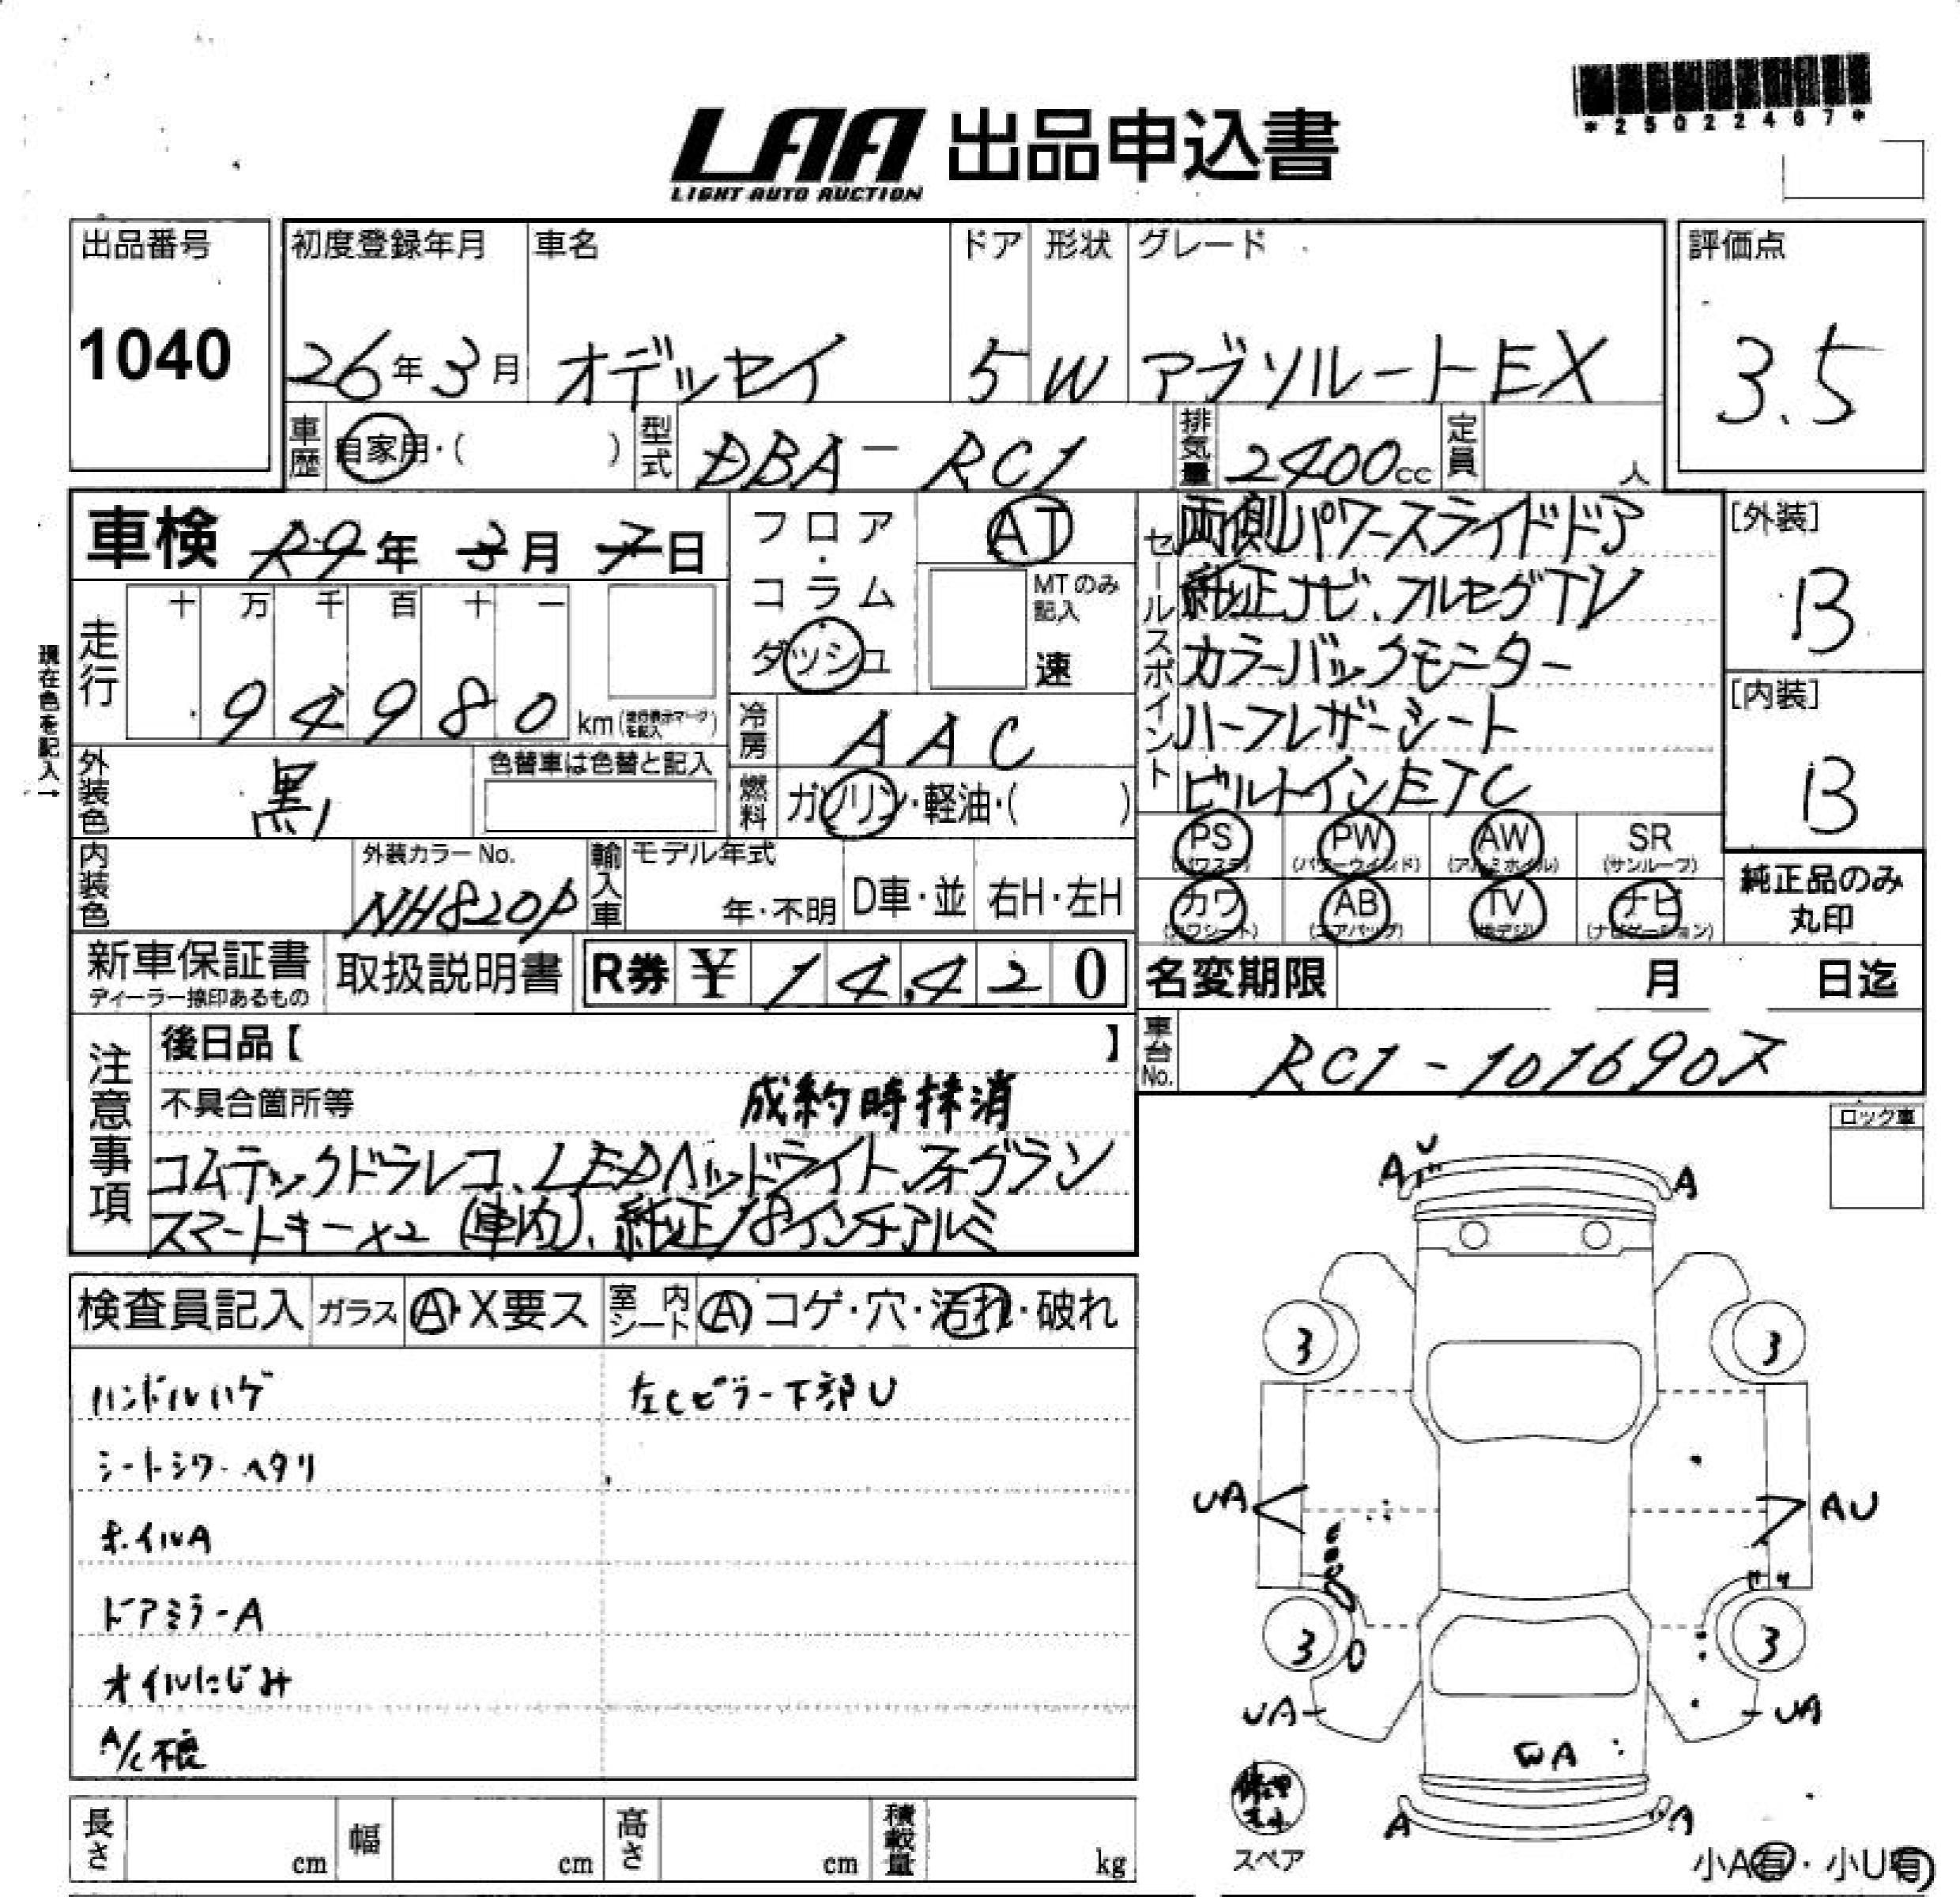 *25022467*
LAA 出品申込書
LIGHT AUTO AUCTION
出品番号 初度登録年月 車名 ドア 形状 グレード 評価点
1040 26年3月 オデッセイ 5 W アブソルートEX 3.5
車歴 自家用・( ) 型式 DBA-RC1 排気量 2400cc 定員 人
車検 R9年 3月 7日
フロア・コラム・ダッシュ
AT
MTのみ記入
速
セールスポイント
両側パワースライドドア
純正ナビ、フルセグTV
カラーバックモニター
ハーフレザーシート
ビルトインETC
[外装]
B
[内装]
B
現在色を記入→
走行 十 万 千 百 十 一
94980 km
冷房 AAC
外装色 黒 色替車は色替と記入
燃料 ガソリン・軽油・( )
PS (パワステ) PW (パワーウインド) AW (アルミホイル) SR (サンルーフ)
カワ (カワシート) AB (エアバッグ) TV (地デジ) ナビ (ナビゲーション)
純正品のみ
丸印
内装色 外装カラーNo. NH820P 輸入車 モデル年式 年・不明 D車・並 右H・左H
新車保証書 ディーラー捺印あるもの 取扱説明書 R券 ¥14,420
名変期限 月 日迄
車台No. RC1-1016907
注意事項
後日品【 】
不具合箇所等 成約時抹消
コムテックドラレコ、LEDヘッドライト、フォグラン
スマートキー×2 (車内)、純正18インチアルミ
ロック車
検査員記入 ガラス A・X要ス 室内シート A コゲ・穴・汚れ・破れ
ハンドルハゲ 左Cピラー下部U
シートシワ・ヘタリ
ホイルA
ドアミラーA
オイルにじみ
A/C不良
U
A A
3 3
UA AU
3 3
UA UA
A A
修理キット
スペア
小A有・小U有
長さ cm 幅 cm 高さ cm 積載量 kg